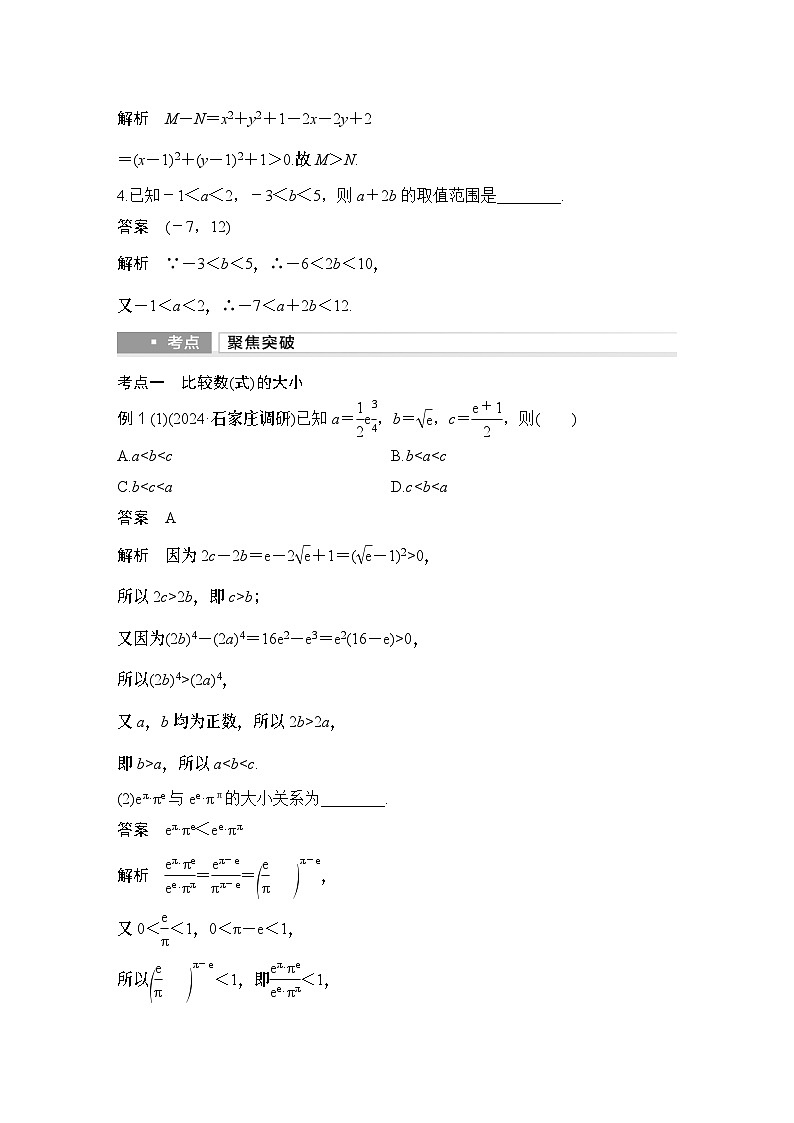 解析　M－N＝x²＋y²＋1－2x－2y＋2
＝(x－1)²＋(y－1)²＋1＞0.故M＞N.
4.已知－1＜a＜2，－3＜b＜5，则a＋2b的取值范围是________.
答案　(－7，12)
解析　∵－3＜b＜5，∴－6＜2b＜10，
又－1＜a＜2，∴－7＜a＋2b＜12.
考点　聚焦突破
考点一　比较数(式)的大小
例1 (1)(2024·石家庄调研)已知a＝\frac{1}{2}e^{\frac{3}{4}}，b＝\sqrt{e}，c＝\frac{e＋1}{2}，则(　　)
A.a<b<c　B.b<a<c
C.b<c<a　D.c<b<a
答案　A
解析　因为2c－2b＝e－2\sqrt{e}＋1＝(\sqrt{e}－1)²>0，
所以2c>2b，即c>b；
又因为(2b)⁴－(2a)⁴＝16e²－e³＝e²(16－e)>0，
所以(2b)⁴>(2a)⁴，
又a，b均为正数，所以2b>2a，
即b>a，所以a<b<c.
(2)e^{π}·π^{e}与e^{e}·π^{π}的大小关系为________.
答案　e^{π}·π^{e}＜e^{e}·π^{π}
解析　\frac{e^{π}·π^{e}}{e^{e}·π^{π}}＝\frac{e^{π－e}}{π^{π－e}}＝(\frac{e}{π})^{π－e}，
又0＜\frac{e}{π}＜1，0＜π－e＜1，
所以(\frac{e}{π})^{π－e}＜1，即\frac{e^{π}·π^{e}}{e^{e}·π^{π}}＜1，